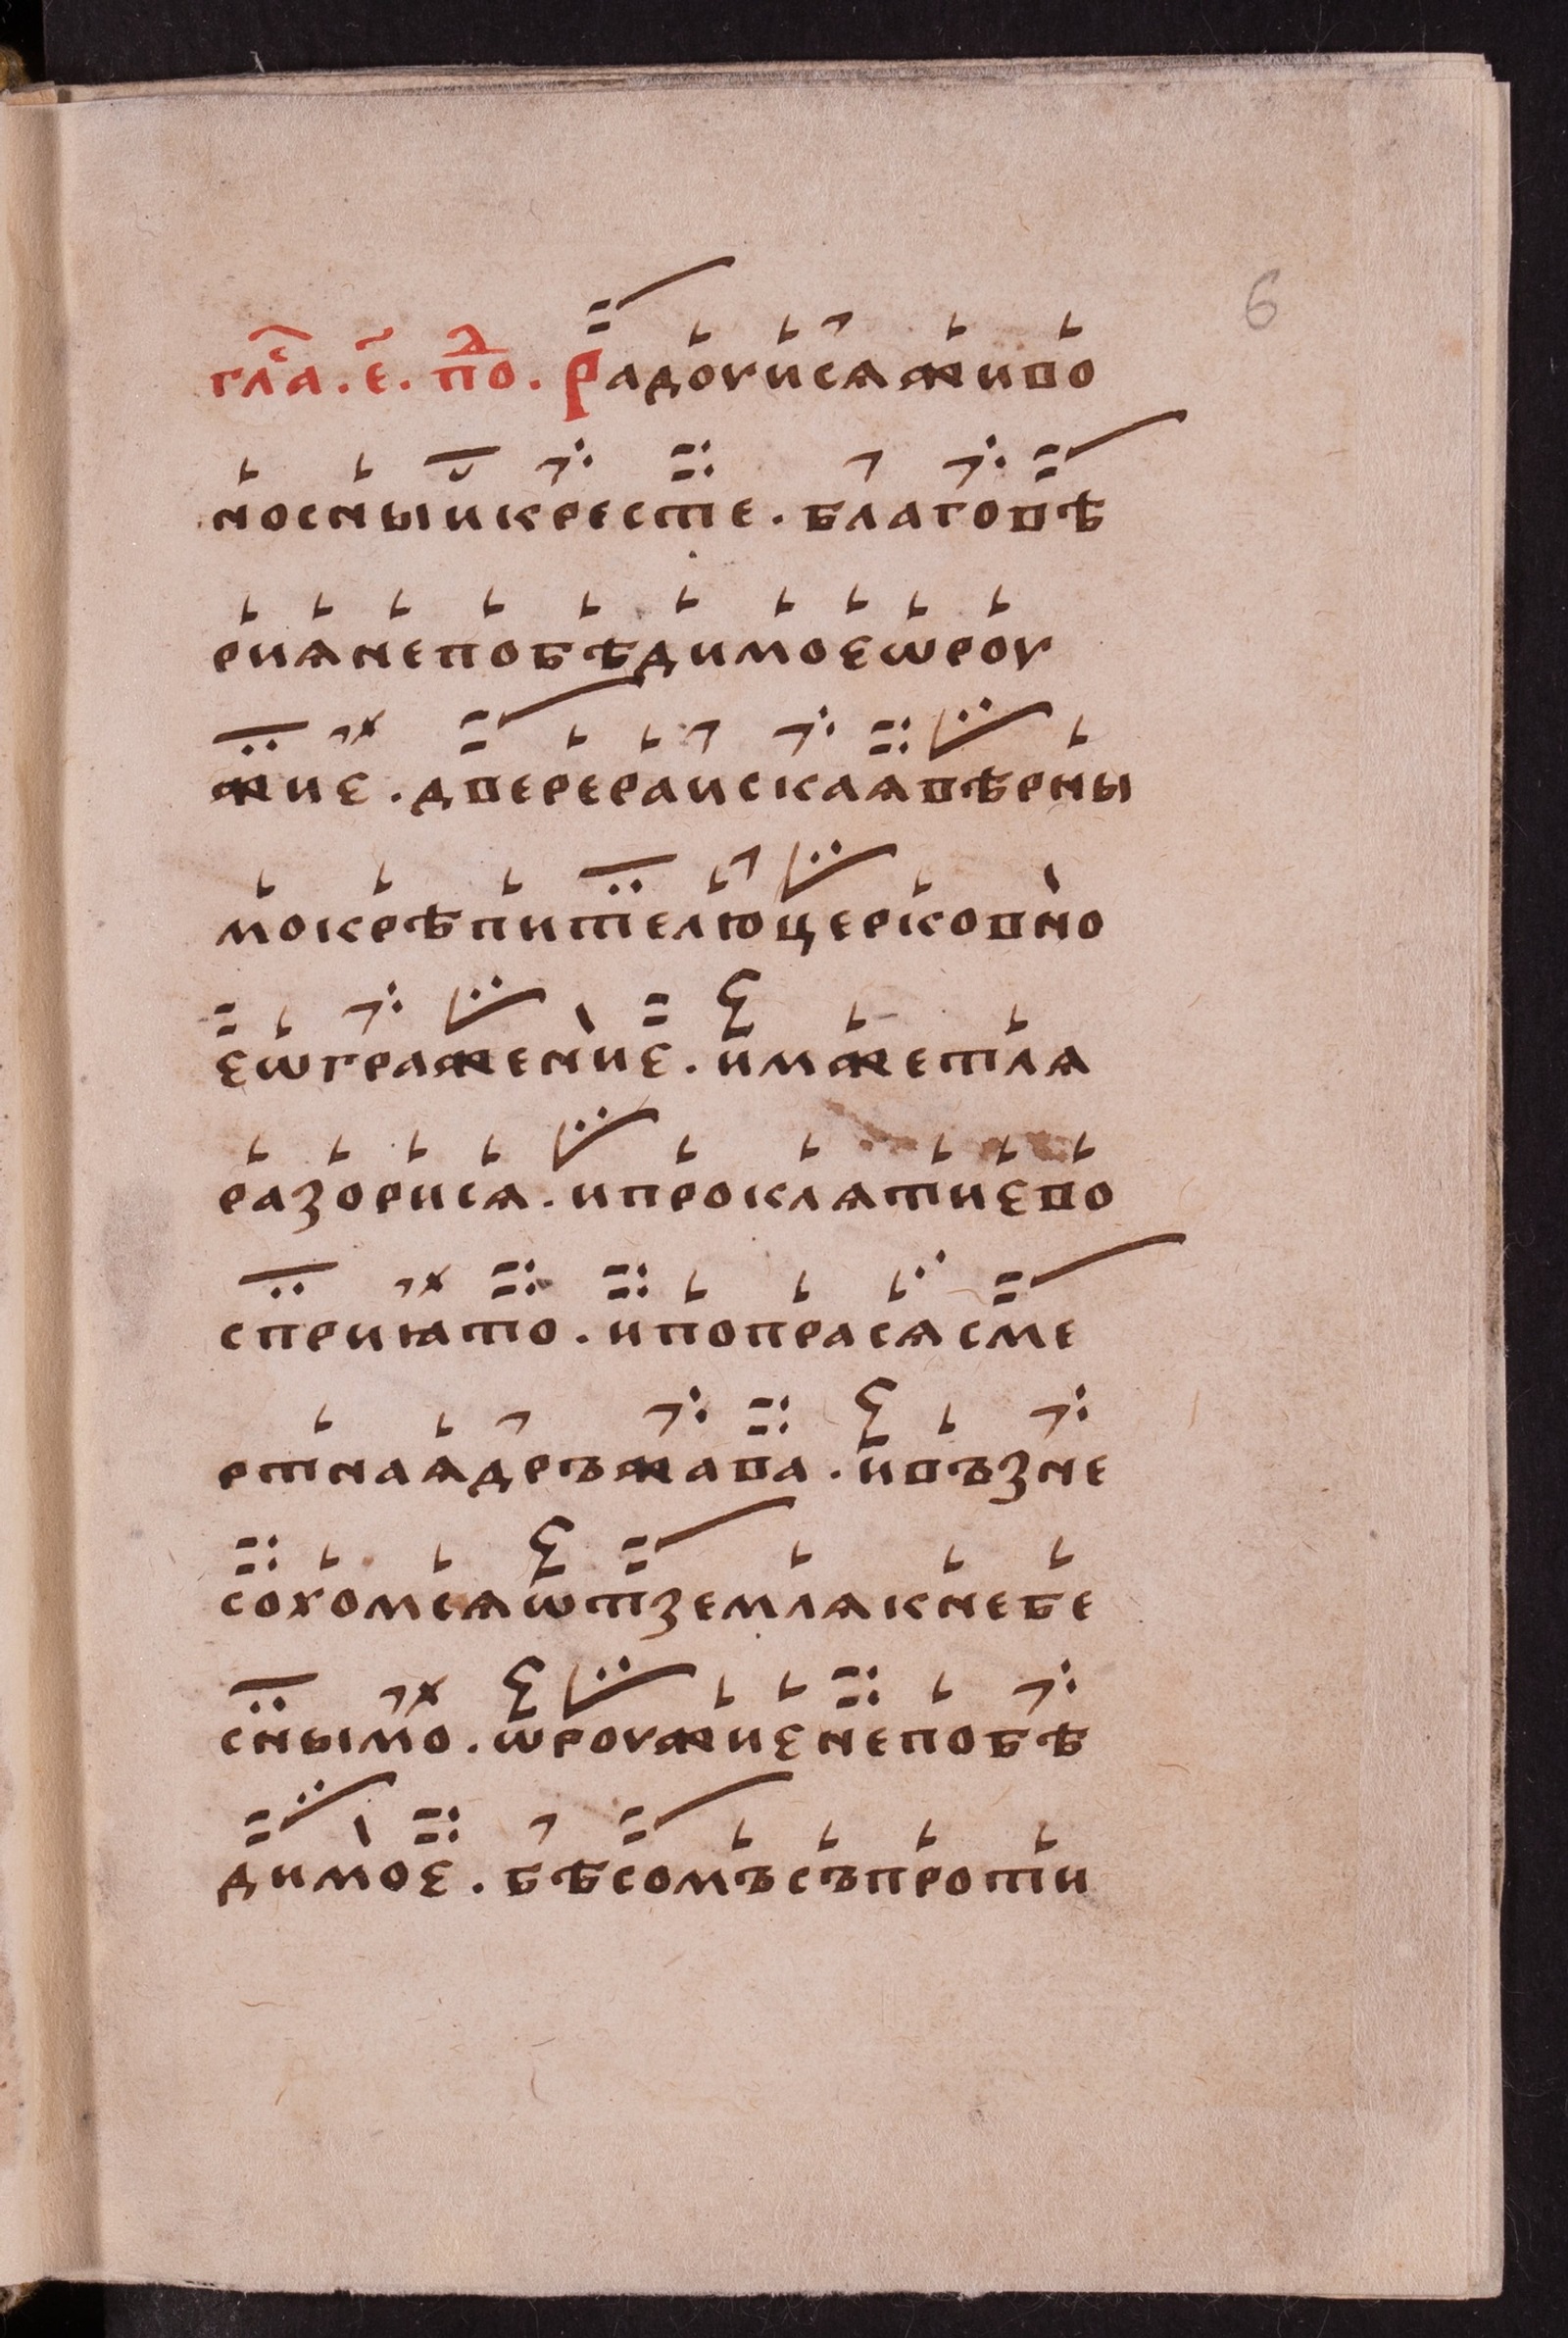 6
гла҃с. е҃. по҃д. Радоуисѧживо
носныикресте. благовѣ
риѧнепобѣдимоеѡроу
жие. дверераискаѧвѣрны
мокрѣпителюцерковно
еѡгражение. имжетлѧ
разорисѧ. ипроклѧтиево
сприꙗто. ипопрасѧсме
ртнаѧдръжава. ивъзне
сохомсѧѡтземлѧкнебе
снымо. ѡроужиенепобѣ
димое. бѣсомъсъпроти